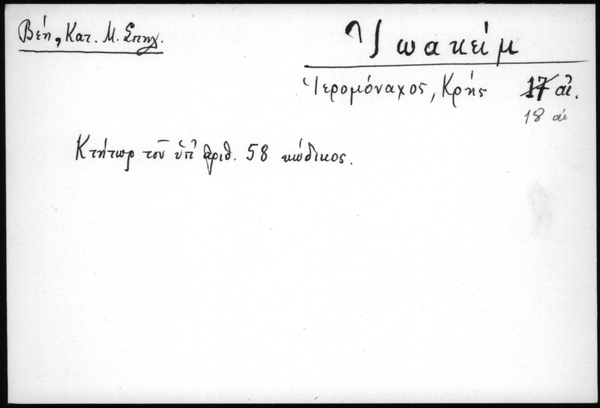 Βέη, Κατ. Μ. Σπηλ.
Ἰωακείμ
Ἱερομόναχος, Κρής 17 αἰ.
18 αἰ
Κτήτωρ τοῦ ὑπ' ἀριθ. 58 κώδικος.